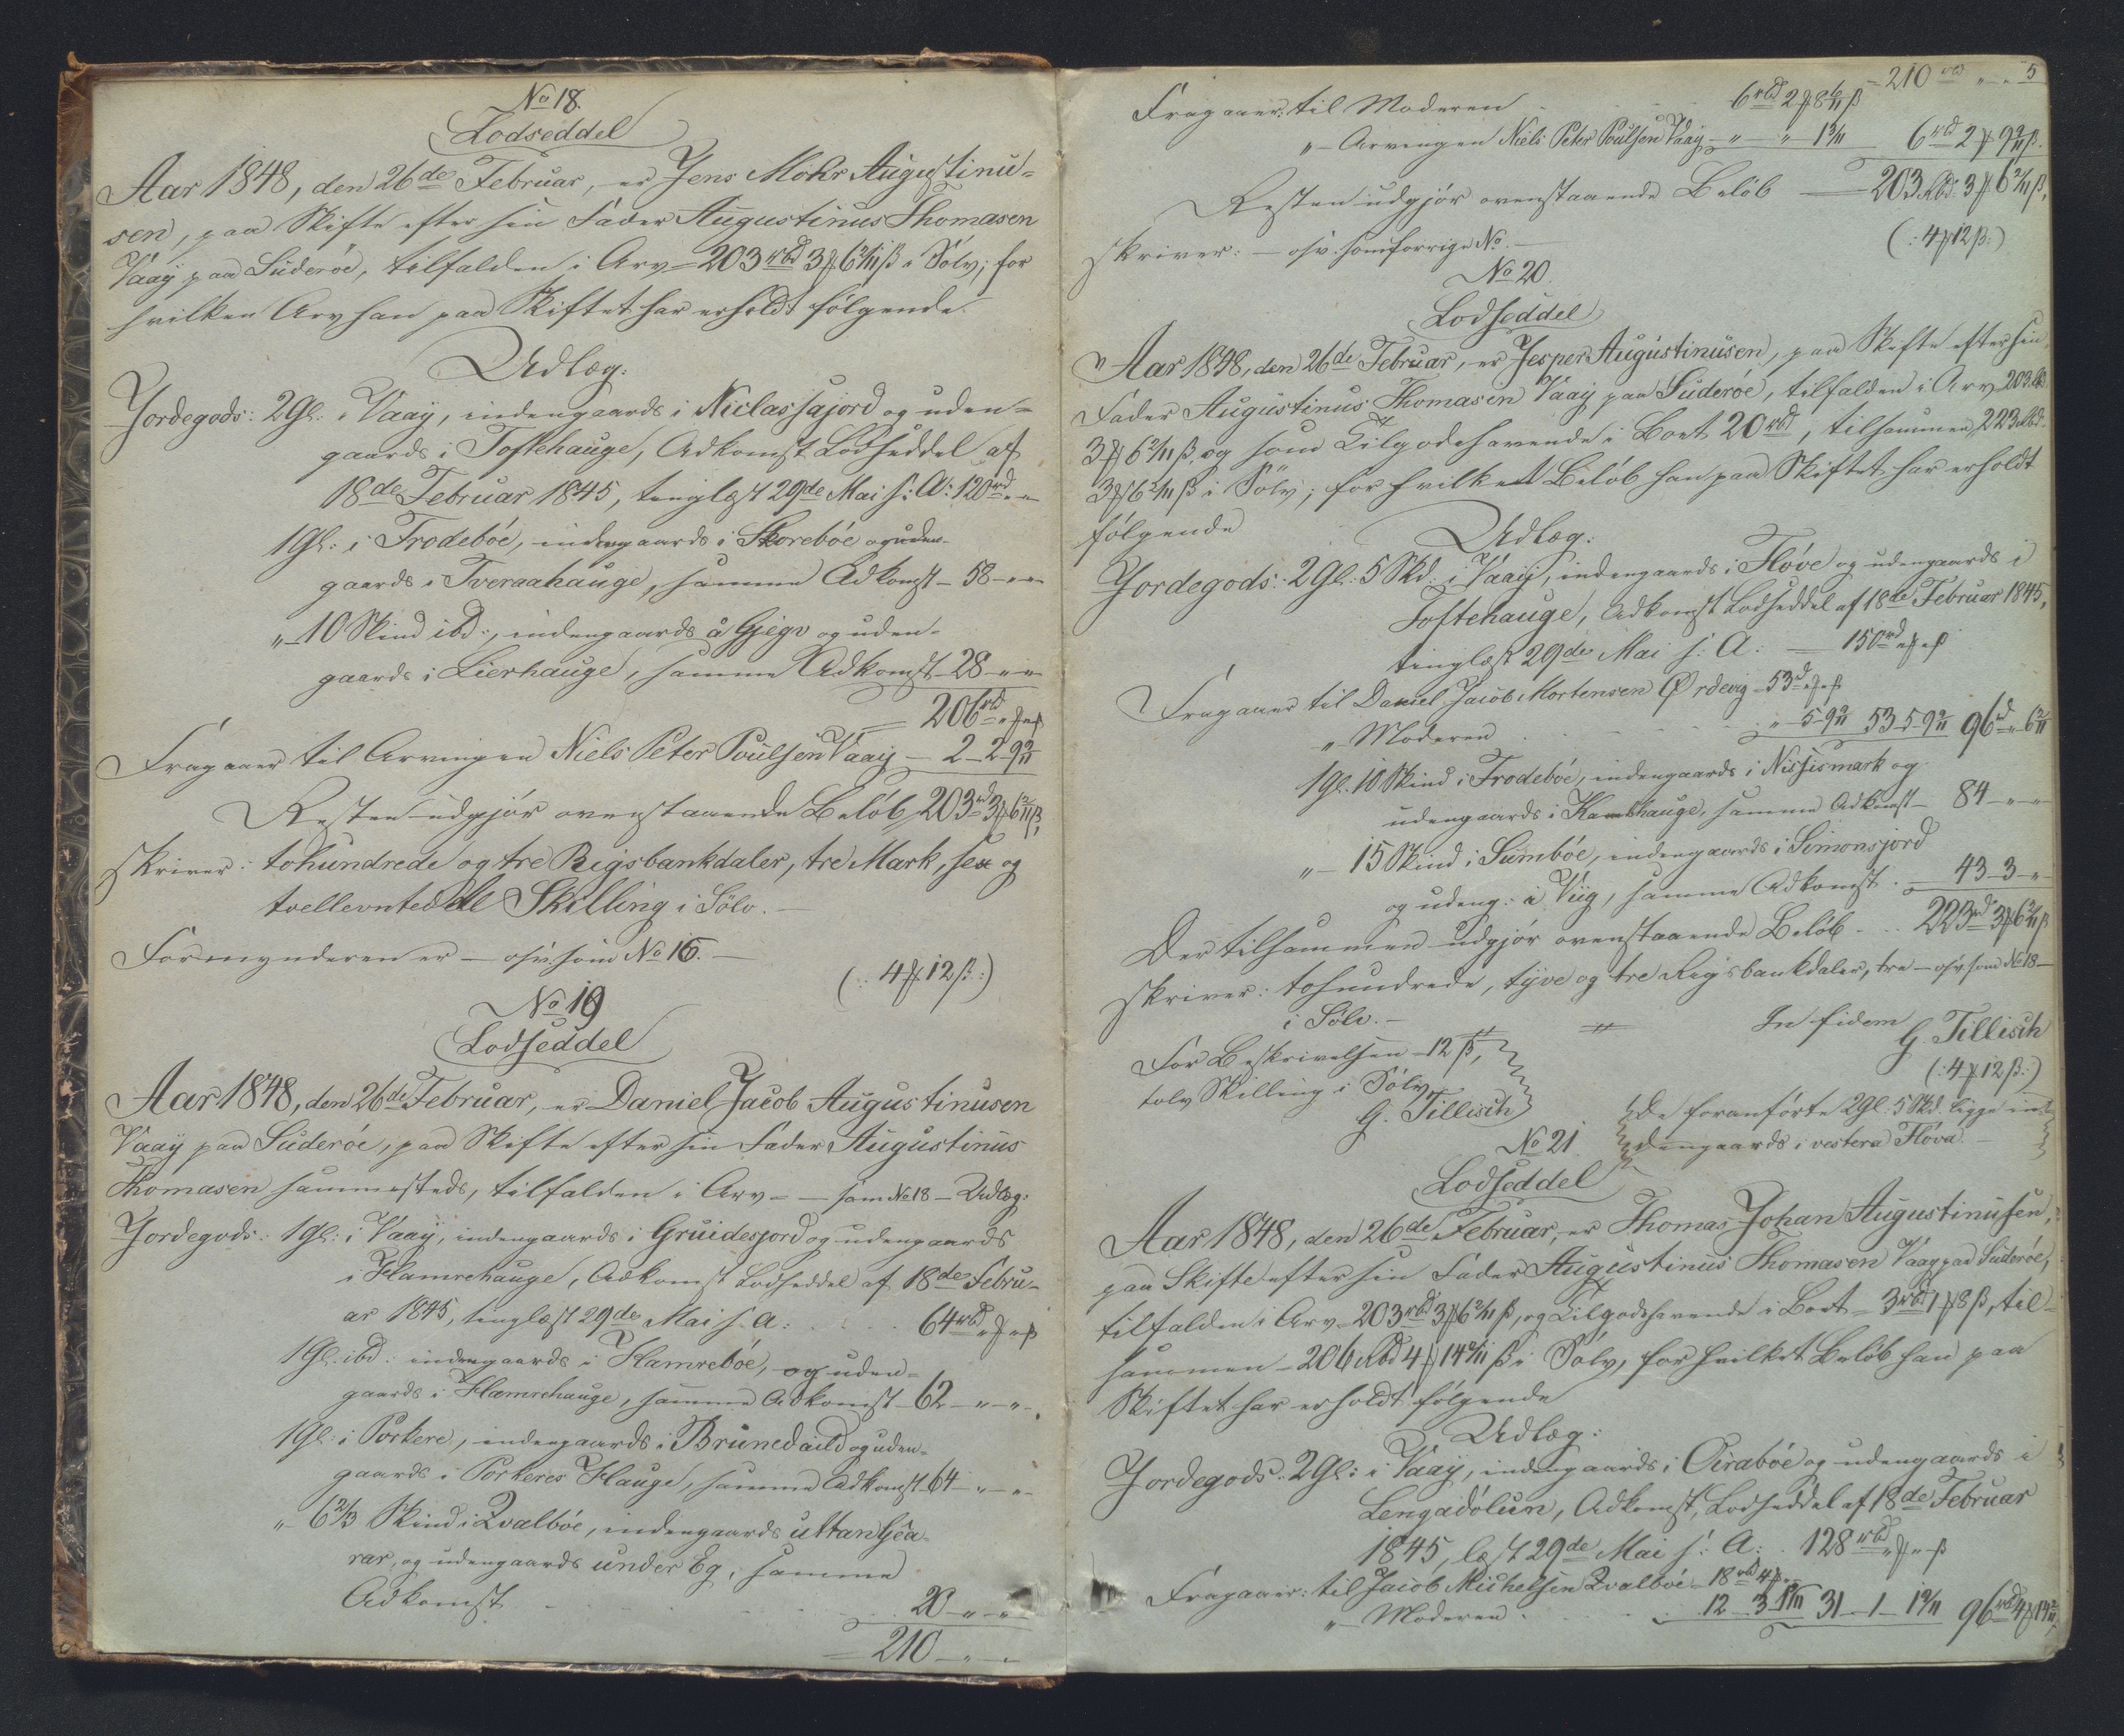 No 18.
Lodseddel
Aar 1848, den 26de Februar, er Jens Mohr Augustinu=
sen, paa Skifte efter sin Fader Augustinus Thomasen
Vaag paa Suderöe, tilfalden i Arv = 203 rbd 3 ℳ 6 2/11 ß i Sölv; for
hvilken Arv han paa Skiftet har erholdt fölgende
Udlæg:
Jordegods: 2 Gl. i Vaag, indengaards i Niclassajord og uden=
gaards i Toftehauge, Adkomst Lodseddel af
18de Februar 1845, tinglæst 29de Mai s: A: 120 rd „ „
1 Gl: i Frodebóe, indengaards i Skorebóe og uden-
gaards i Tveraahauge, samme Adkomst – 58 – „ – „
„ – 10 Skind ibd:, indengaards á Gjegv og uden-
gaards i Lierhauge, samme Adkomst – 28 – „ – „
= 206 rbd „ ℳ „ ß
Fragaaer til Arvingen Niels Peter Poulsen Vaag — 2 – 2 – 9 9/11
Resten udgjör ovenstaaende Belöb 203 rd 3 ℳ 6 2/11 ß,
skriver: tohundrede og tre Rigsbankdaler, tre Mark, sex og
toellevntedele Skilling i Sölv. –
Formynderen er – osv. som No 16. –
(: 4 ℳ 12 ß :)
No 19
Lodseddel
Aar 1848, den 26de Februar, er Daniel Jacob Augustinusen
Vaag paa Suderöe, paa Skifte efter sin Fader Augustinus
Thomasen sammesteds, tilfalden i Arv – – som No 18 – Udlæg:
Jordegods: 1 Gl: i Vaag, indengaards i Gruidesjord og udengaards
i Hamrehauge, Adkomst Lodseddel af 18de Febru-
ar 1845, tinglæst 29de Mai s. A: . . . . 64 rbd „ ℳ „ ß
1 Gl. ibd: indengaards i Hamrebóe, og uden=
gaards i Hamrehauge, samme Adkomst – 62 – „ – „ –
1 Gl: i Porkere, indengaards i Brunedaild og uden=
gaards i Porkeres Hauge, samme Adkomst – 64 – „ – „
„ – 6 2/3 Skind i Qvalbóe, indengaards uttan Gea-
rar, og udengaards under Eg, samme
Adkomst . . . . 20 – „ – „
= 210 – „ – „
5
= 210 rbd „ – „
Fragaaer: til Moderen . . . 6 rbd 2 ℳ 8 6/11 ß
„ – Arvingen Niels Peter Poulsen Vaag – „ – „ – 1 3/11 6 rbd 2 ℳ 9 9/11 ß.
Resten udgjör ovenstaaende Belöb — 203 Rbd. 3 ℳ 6 2/11 ß,
skriver: – osv. som forrige No. – (: 4 ℳ 12 ß :)
No 20.
Lodseddel
Aar 1848, den 26de Februar, er Jesper Augustinusen, paa Skifte efter sin
Fader Augustinus Thomasen Vaag paa Suderöe, tilfalden i Arv 203 Rbd.
3 ℳ 6 2/11 ß, og som Tilgodehavende i Boet 20 rbd, tilsammen 223 Rbd.
3 ℳ 6 2/11 ß i Sölv; for hvilket Belöb han paa Skiftet har erholdt
fölgende
Udlæg:
Jordegods: 2 Gl: 5 Skd: i Vaag, indengaards i Flöve og udengaards i
Toftehauge, Adkomst Lodseddel af 18de Februar 1845,
tinglæst 29de Mai s: A: — 150 rd „ ℳ „ ß
Fragaaer til Daniel Jacob Mortensen Ørdevig – 53 rd „ ℳ „ ß
„ – Moderen . . . „ – 5 – 9 9/11 53 – 5 – 9 9/11 96 rd „ 6 2/11
1 Gl. 10 Skind i Frodebóe, indengaards i Nissismark og
udengaards i Kambhauge, samme Adkomst – 84 – „ – „
„ – 15 Skind i Sumbóe, indengaards i Simonsjord
og udeng: á Viig, samme Adkomst . — 43 – 3 – „
Der tilsammen udgjör ovenstaaende Belöb . . 223 rd 3 ℳ 6 2/11 ß
skriver: tohundrede, tyve og tre Rigsbankdaler, tre – osv. som No 18 –
i Sölv. –
In fidem
G. Tillisch
For Beskrivelsen – 12 ß,
tolv Skilling i Sölv.
G. Tillisch
(: 4 ℳ 12 ß :)
De foranförte 2 Gl: 5 Skd. ligge in=
dengaards i vestera Flöva. –
No 21.
Lodseddel
Aar 1848, den 26de Februar, er Thomas Johan Augustinusen,
paa Skifte efter sin Fader Augustinus Thomasen Vaag paa Suderöe,
tilfalden i Arv = 203 rbd 3 ℳ 6 2/11 ß, og Tilgodehavende i Boet = 3 rbd 1 ℳ 8 ß, til-
sammen – 206 Rbd 4 ℳ 14 2/11 ß i Sölv, for hvilket Belöb han paa
Skiftet har erholdt fölgende
Udlæg:
Jordegods: 2 Gl: i Vaag, indengaards i Öirabóe og udengaards i
Lengadölun, Adkomst, Lodseddel af 18de Februar
1845, læst 29de Mai s: A: . 128 rbd „ ℳ „ ß
Fragaaer: til Jacob Michelsen Qvalbóe – 18 rbd 4 ℳ „
„ – Moderen . . . 12 – 3 – 1 9/11 31 – 1 – 1 9/11 96 rbd 4 ℳ 14 2/11